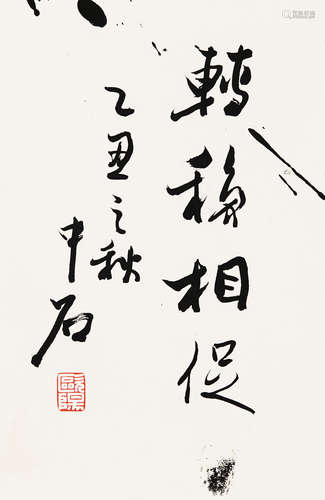 轉移相促
乙丑之秋
中石